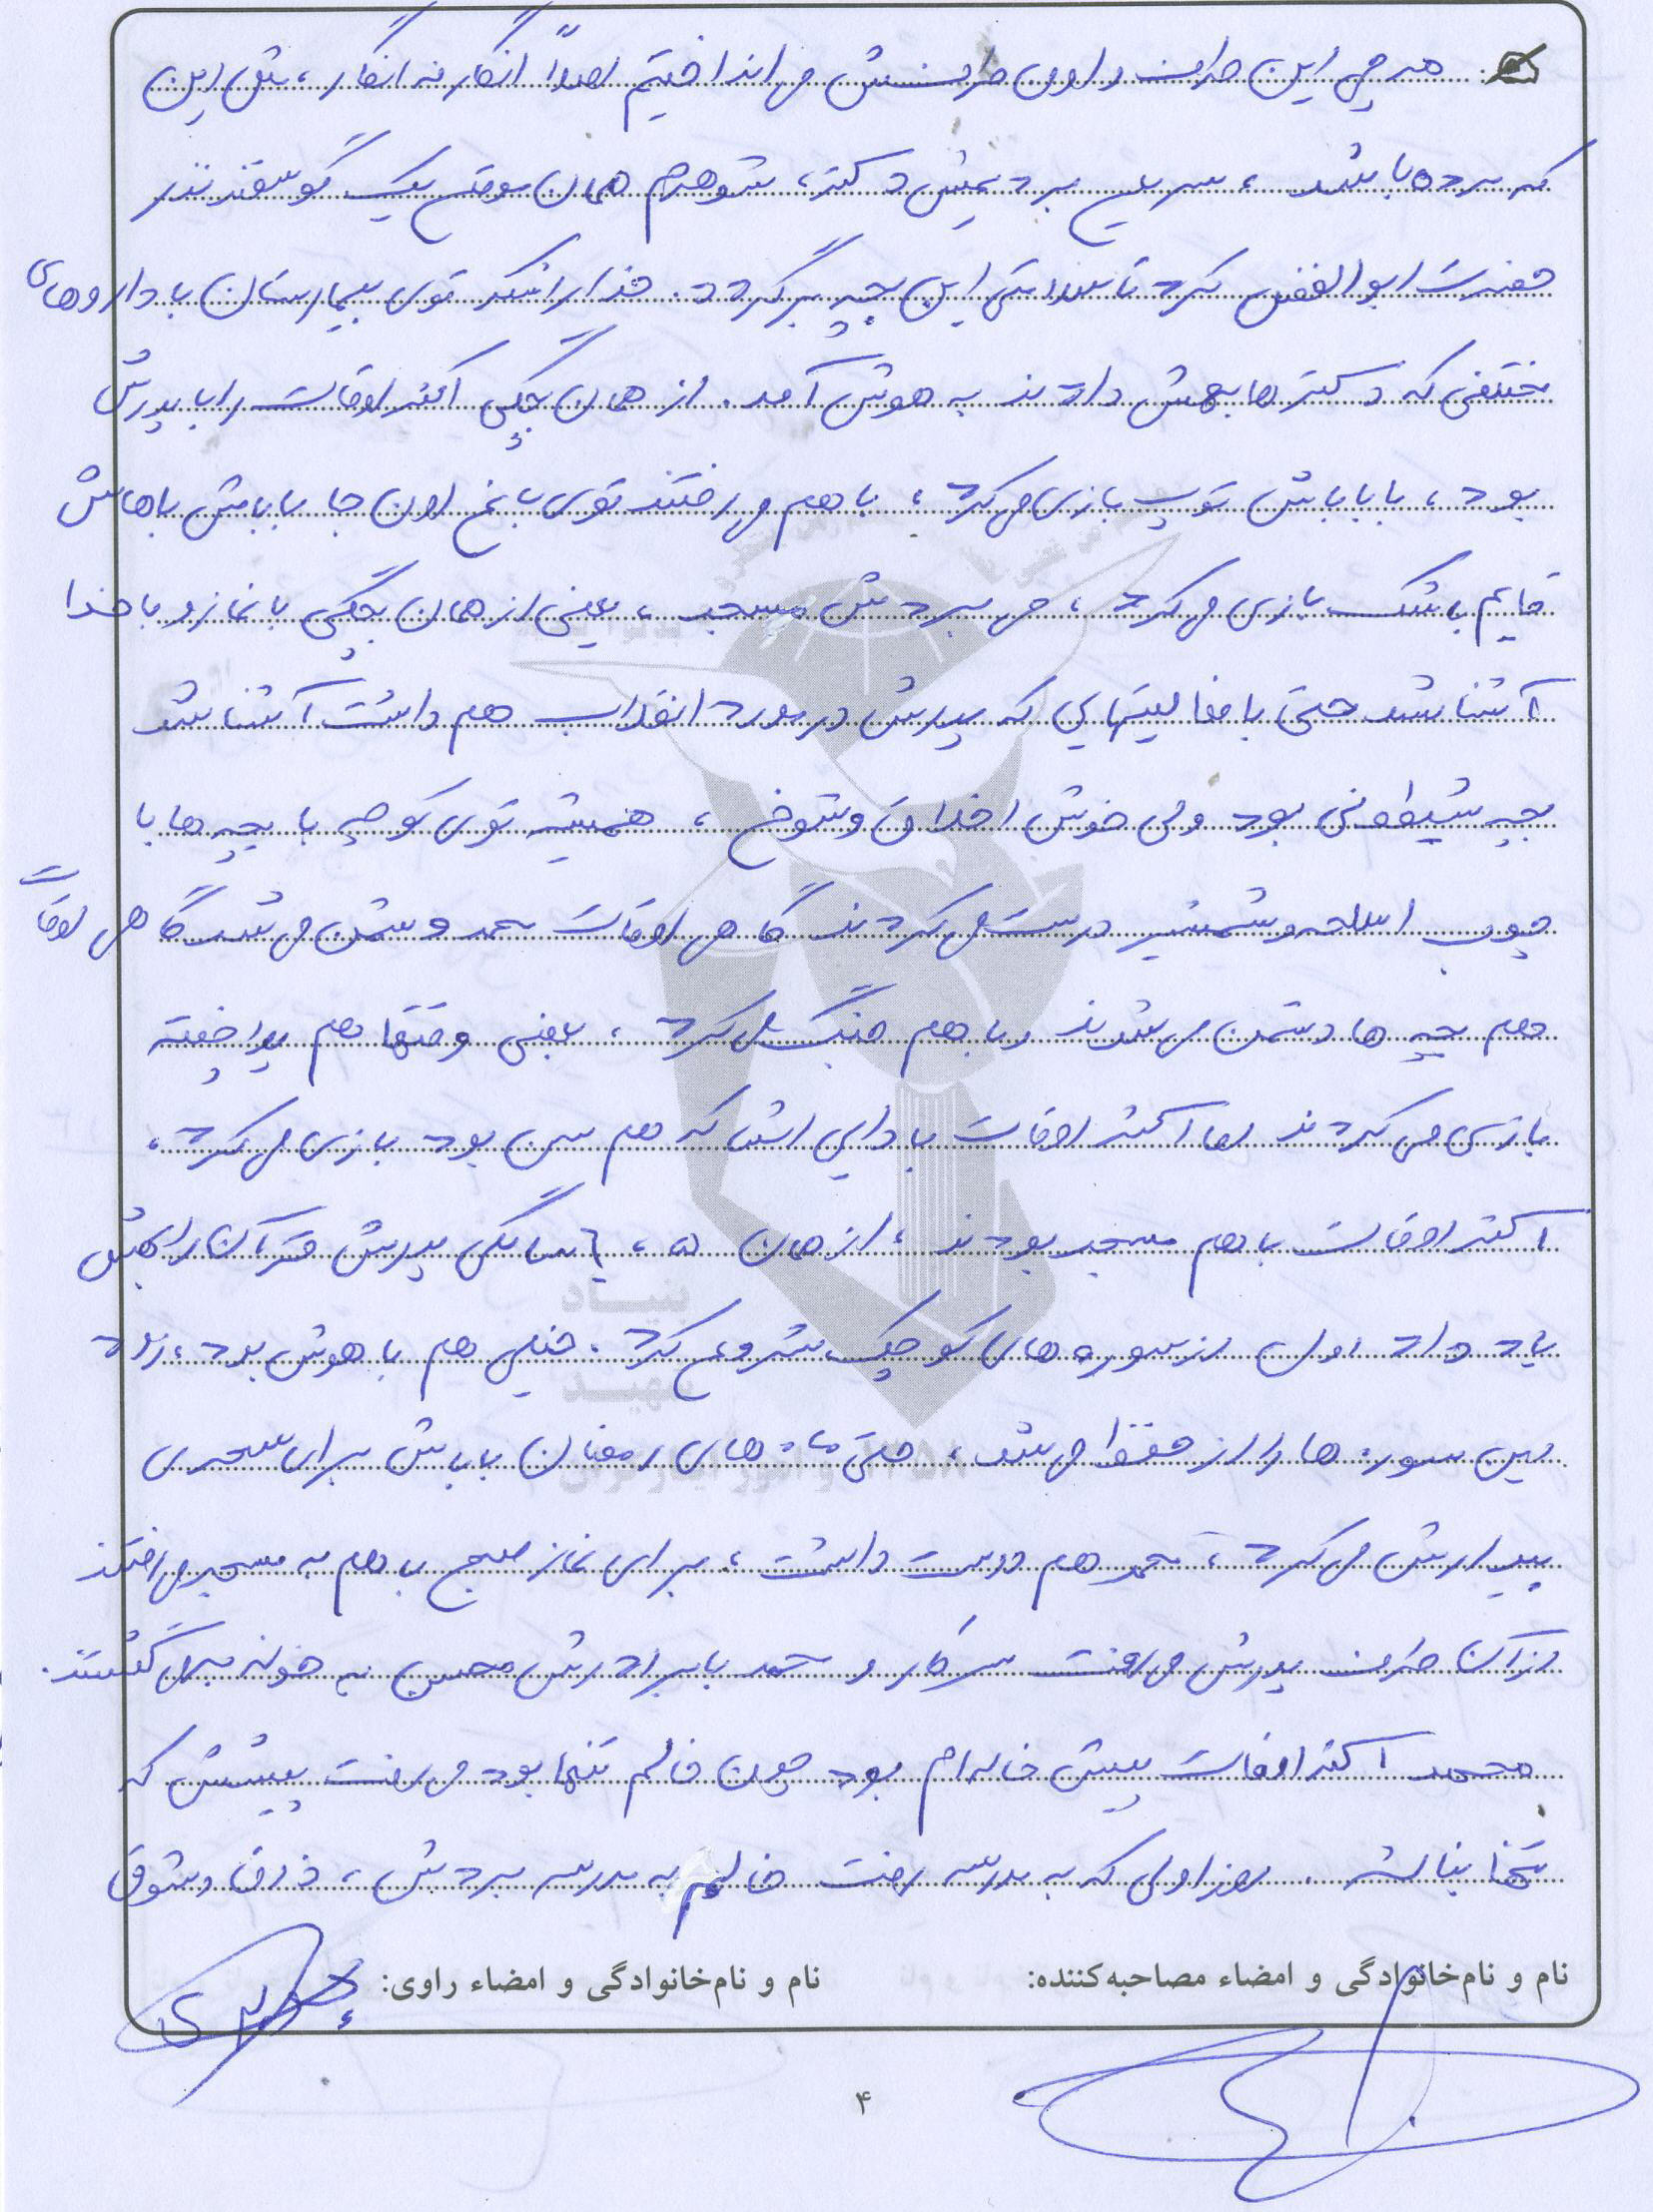 هر چی این طرف و اون طرفش می انداختیم اصلاً انگار نه انگار، مثل این
که مرده باشد، سریع بردیمش دکتر، شوهرم همان موقع یک گوسفند نذر
حضرت ابوالفضل کرد تا سلامتی این بچه برگردد. خدا را شکر توی بیمارستان با داروهای
مختلفی که دکترها بهش دادند به هوش آمد. از همان بچگی اکثر اوقات را با پدرش
بود، با باباش توپ بازی می کرد، با هم می رفتند توی باغ اون جا باباش باهاش
قایم باشک بازی می کرد، می بردش مسجد، یعنی از همان بچگی با نماز و با خدا
آشنا شد حتی با فعالیتهایی که پدرش در مورد انقلاب هم داشت آشنا شد
بچه شیطونی بود ولی خوش اخلاق و شوخ، همیشه توی کوچه با بچه ها با
چوب اسلحه و شمشیر درست می کردند گاهی اوقات محمد دشمن می شد گاهی اوقات
هم بچه ها دشمن می شدند و با هم جنگ می کرد، بعضی وقتها هم
بازی می کردند اما اکثر اوقات با دایی اش که هم سن بود بازی می کرد.
اکثر اوقات با هم مسجد بودند، از همان ۵، ۶ سالگی پدرش قرآن را بهش
یاد داد اول از سوره های کوچک شروع کرد. خیلی هم با هوش بود، زود
این سوره ها را از حفظ می شد، حتی ماه های رمضان باباش برای سحری
بیدارش می کرد، محمد هم دوست داشت، برای نماز صبح با هم به مسجد می رفتند
از آن طرف پدرش می رفت سرکار و محمد با برادرش محسن به خونه برمی گشتند.
محمد اکثر اوقات پیش خاله ام بود چون خالم تنها بود می رفت پیشش که
تنها نباشه. روز اولی که به مدرسه رفت خالم به مدرسه بردش، ذوق و شوق
نام و نام‌خانوادگی و امضاء مصاحبه‌کننده: نام و نام‌خانوادگی و امضاء راوی:
۴